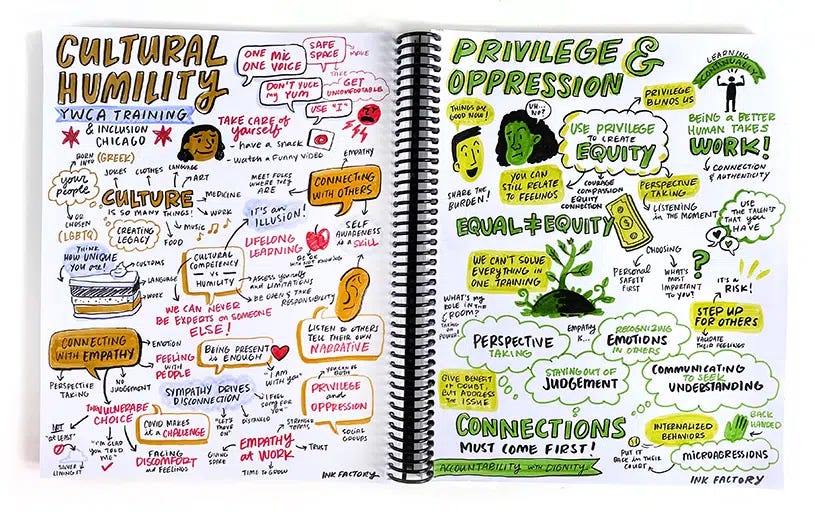 CULTURAL
HUMILITY
YWCA TRAINING
& INCLUSION
CHICAGO
ONE MIC
ONE VOICE
SAFE
SPACE
MOVE
DON'T YUCK
my YUM
TAKE
GET
UNCOMFORTABLE
USE "I"
TAKE CARE OF
yourself
- have a snack
- watch a Funny VIDEO
BORN
INTO
(GREEK)
your
people
OR
CHOSEN
(LGBTQ)
JOKES
CLOTHES
LANGUAGE
ART
CULTURE
IS SO MANY THINGS!
MEDICINE
WORK
MUSIC
FOOD
CREATING
LEGACY
MEET FOLKS
WHERE THEY
ARE
EMPATHY
CONNECTING
WITH OTHERS
SELF
AWARENESS
is a SKILL
IT'S an
ILLUSION!
LIFELONG
LEARNING
BE OK
WITH NOT KNOWING
THINK
HOW UNIQUE
YOU ARE!
CUSTOMS
LANGUAGE
WORK
CULTURAL
COMPETENCY
VS
HUMILITY
ASSESS yourself
and LIMITATIONS
BE OPEN & TAKE
RESPONSIBILITY
WE CAN NEVER
BE EXPERTS on SOMEONE
ELSE!
LISTEN to OTHERS
TELL THEIR OWN
NARRATIVE
CONNECTING
WITH EMPATHY
EMOTION
FEELING
WITH
PEOPLE
PERSPECTIVE
TAKING
NO
JUDGEMENT
BEING PRESENT
is ENOUGH
"I AM
WITH YOU"
SYMPATHY DRIVES
DISCONNECTION
"LET'S
MOVE
ON"
DISTANCED
"I FEEL
SORRY FOR
YOU"
YOU CAN BE
BOTH
PRIVILEGE
and
OPPRESSION
SOCIAL
GROUPS
VULNERABLE
CHOICE
NOT
"AT LEAST"
SILVER
LINING IT
"I'M GLAD
YOU TOLD
ME"
COVID MAKES
it a CHALLENGE
FACING
DISCOMFORT
and FEELINGS
EMPATHY
at WORK
GIVING
SPACE
TIME TO GROW
STRONGER
TEAMS
TRUST
INK FACTORY
PRIVILEGE &
OPPRESSION
LEARNING
CONTINUALLY
THINGS ARE
GOOD NOW!
UH...
NO?
PRIVILEGE
BLINDS US
USE PRIVILEGE
TO CREATE
EQUITY
BEING A BETTER
HUMAN TAKES
WORK!
CONNECTION
& AUTHENTICITY
SHARE THE
BURDEN!
YOU CAN
STILL RELATE
TO FEELINGS
COURAGE
COMPASSION
EQUITY
CONNECTION
PERSPECTIVE
TAKING
LISTENING
in THE MOMENT
USE
THE TALENTS
THAT YOU
HAVE
EQUAL ≠ EQUITY
WE CAN'T SOLVE
EVERYTHING IN
ONE TRAINING
CHOOSING
PERSONAL
SAFETY
FIRST
WHAT'S
MOST
IMPORTANT
TO YOU?
?
IT'S A
RISK!
STEP UP
FOR OTHERS
VALIDATE
THEIR FEELINGS
WHAT'S MY
ROLE IN
THE ROOM?
TAKING
ON
POWER!
PERSPECTIVE
TAKING
EMPATHY
RECOGNIZING
EMOTIONS
IN OTHERS
STAYING OUT OF
JUDGEMENT
COMMUNICATING
to SEEK
UNDERSTANDING
GIVE BENEFIT
of DOUBT,
BUT ADDRESS
THE ISSUE
CONNECTIONS
MUST COME FIRST!
ACCOUNTABILITY WITH DIGNITY
INTERNALIZED
BEHAVIORS
BACK
HANDED
PUT IT
BACK IN THEIR
COURT
MICROAGRESSIONS
INK FACTORY